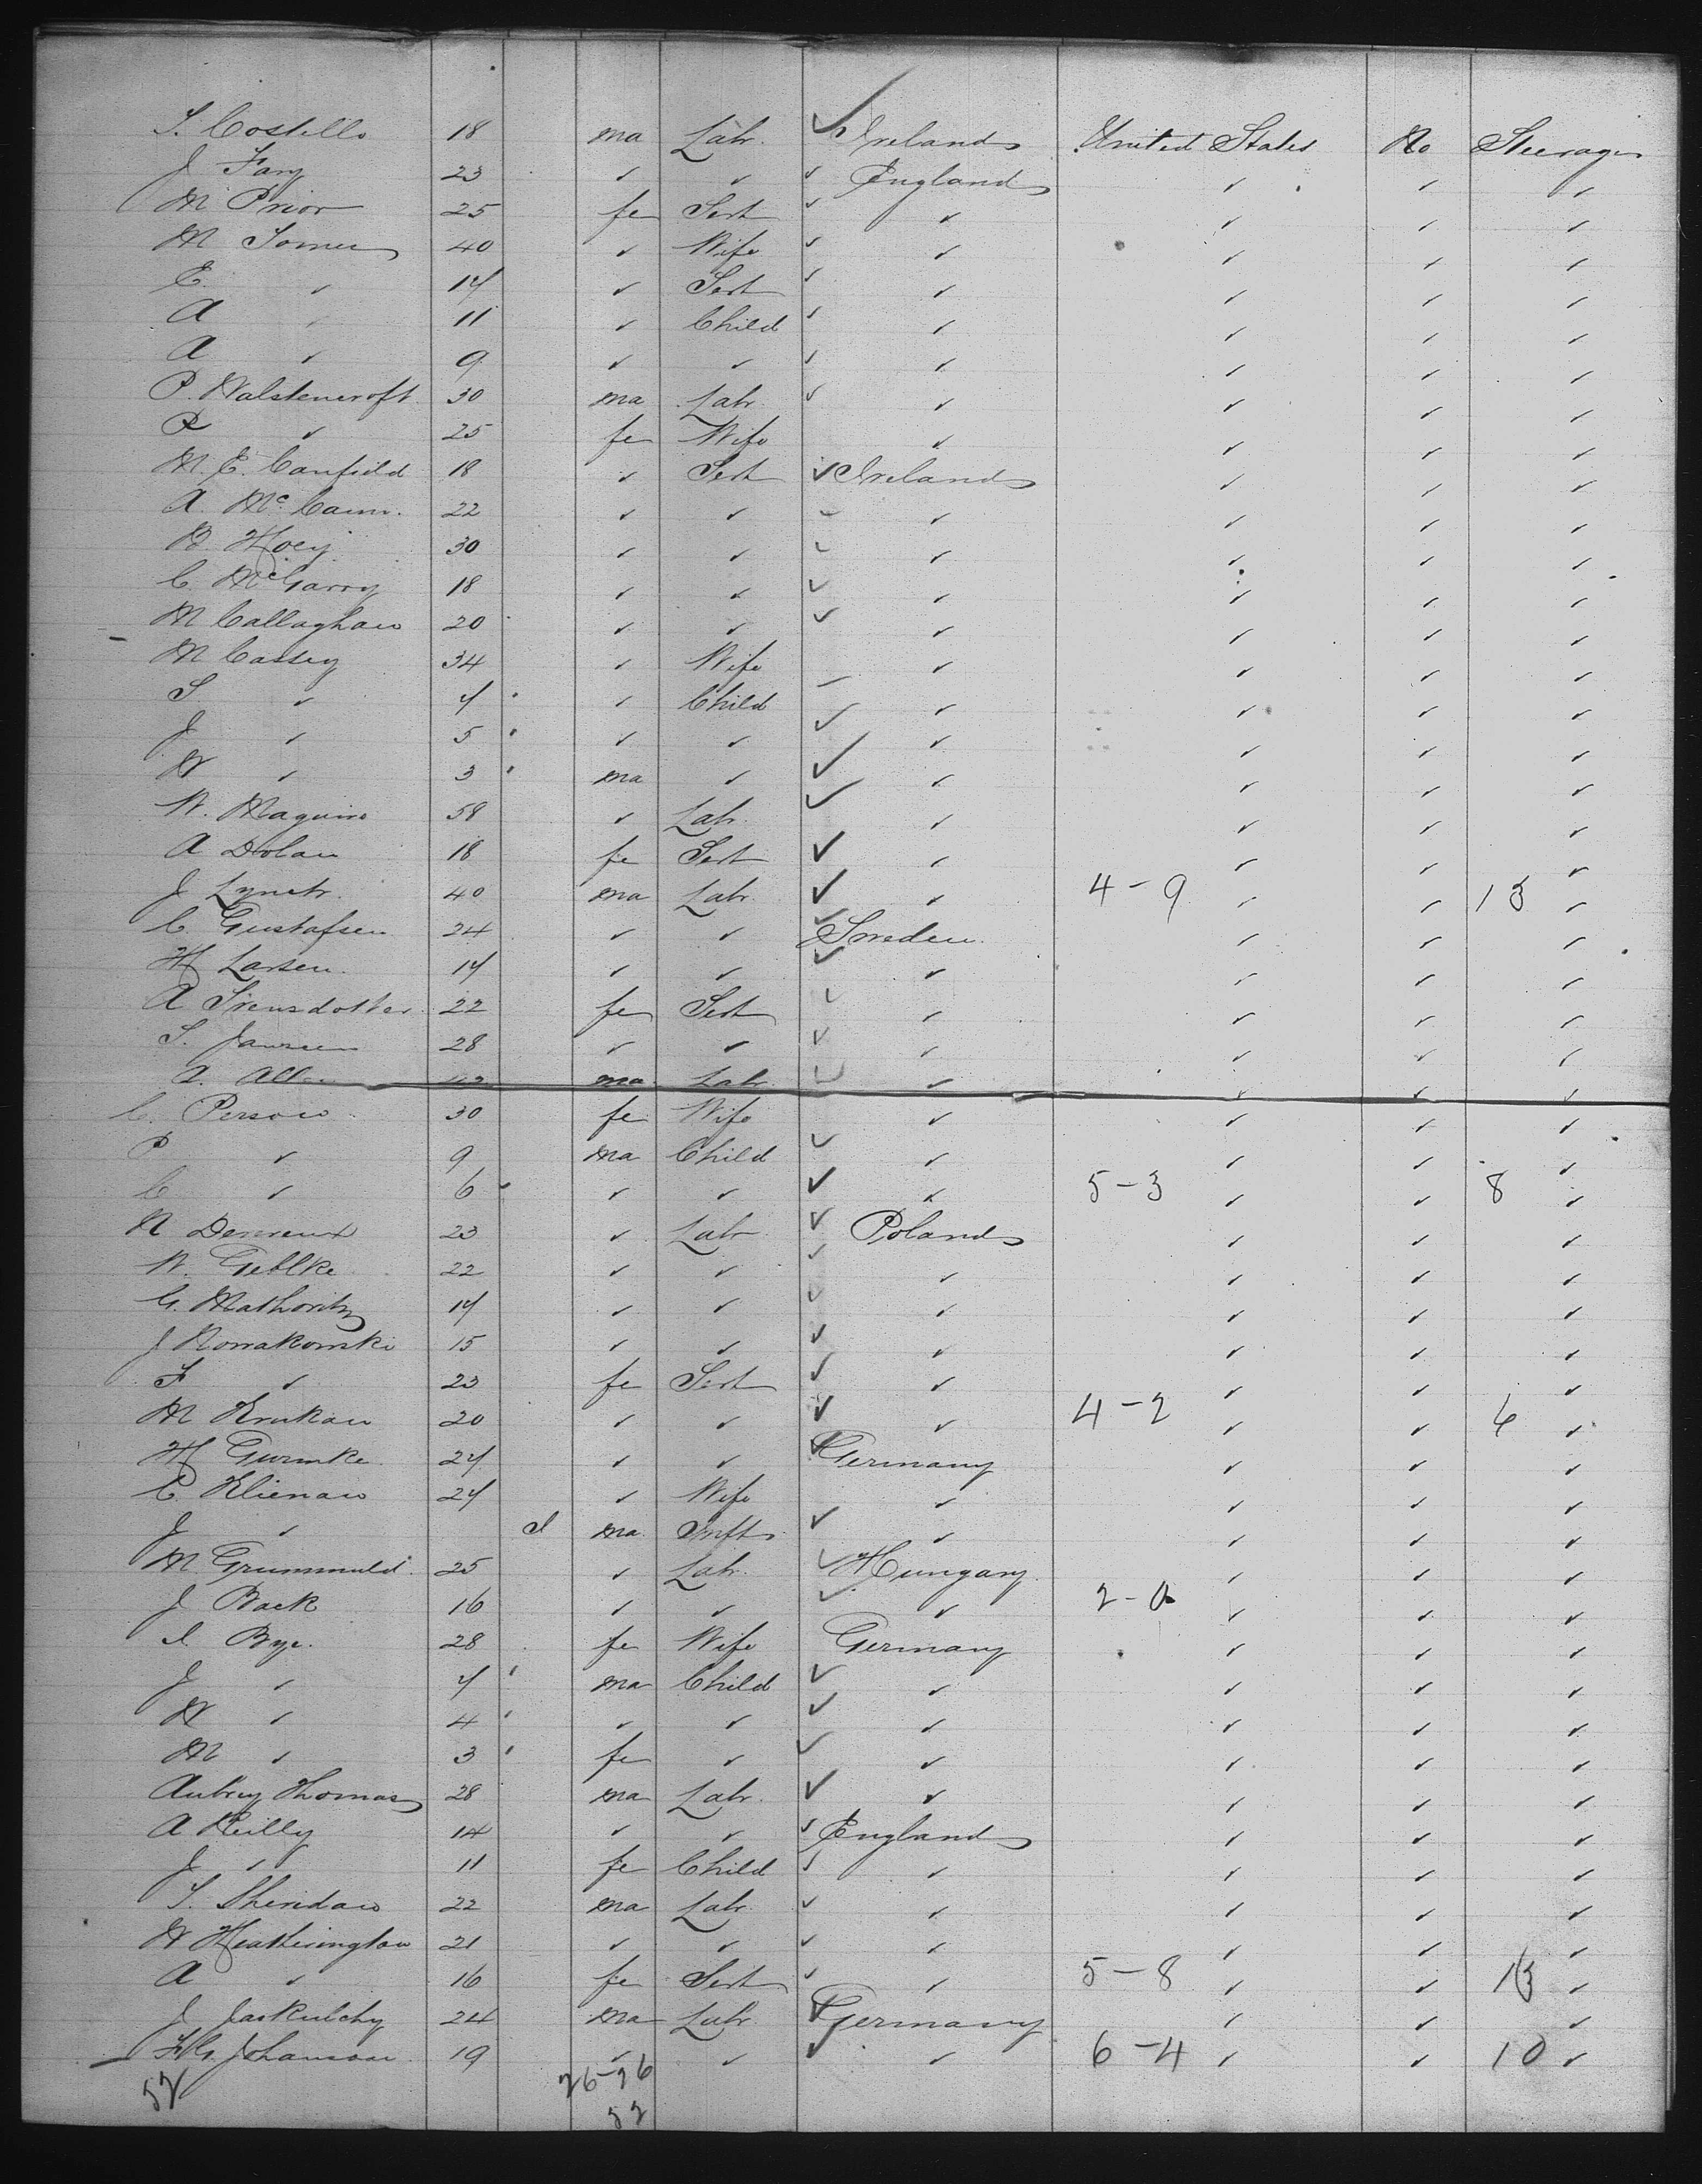 S. Costello 18 ma Labr. ✓ Ireland United States No Steerage
J Fary 23 ✓ ✓ ✓ England ✓ ✓ ✓
M Prior 25 fe Sert ✓ ✓ ✓ ✓ ✓
M Somers 40 ✓ Wife ✓ ✓ ✓ ✓ ✓
E. ✓ 14 ✓ Sert ✓ ✓ ✓ ✓ ✓
A ✓ 11 ✓ Child ✓ ✓ ✓ ✓ ✓
A ✓ 9 ✓ ✓ ✓ ✓ ✓ ✓ ✓
P. Walstencroft 30 ma Labr. ✓ ✓ ✓ ✓ ✓
R ✓ 25 fe Wife ✓ ✓ ✓ ✓
M. E. Canfield 18 ✓ Sert ✓ Ireland ✓ ✓ ✓
A. McCann. 22 ✓ ✓ ✓ ✓ ✓ ✓ ✓
B Hoey 30 ✓ ✓ ✓ ✓ ✓ ✓ ✓
C. McGarry 18 ✓ ✓ ✓ ✓ ✓ ✓ ✓
M Callaghan 20 ✓ ✓ ✓ ✓ ✓ ✓ ✓
M Cassey 34 ✓ Wife ✓ ✓ ✓ ✓
S ✓ ✓ Child ✓ ✓ ✓ ✓ ✓
J ✓ 5 ✓ ✓ ✓ ✓ ✓ ✓ ✓
W ✓ 3 ma ✓ ✓ ✓ ✓ ✓ ✓
W. Maguire 58 ✓ Labr. ✓ ✓ ✓ ✓ ✓
A Dolan 18 fe Sert ✓ ✓ ✓ ✓ ✓
J Lynch 40 ma Labr ✓ ✓ 4-9 ✓ ✓ 13 ✓
C Gustafsen 24 ✓ ✓ ✓ Sweden ✓ ✓ ✓
H Larsen. ✓ ✓ ✓ ✓ ✓ ✓ ✓
A Svensdotter 22 fe Sert ✓ ✓ ✓ ✓ ✓
S. Janssen 28 ✓ ✓ ✓ ✓ ✓ ✓ ✓
ma Labr ✓ ✓ ✓ ✓ ✓
C. Person 30 fe Wife ✓ ✓ ✓ ✓
P ✓ 9 ma Child ✓ ✓ ✓ ✓ ✓
C ✓ 6 ✓ ✓ ✓ ✓ 5-3 ✓ ✓ 8 ✓
N 23 ✓ Labr ✓ Poland ✓ ✓ ✓
W. Geblke 22 ✓ ✓ ✓ ✓ ✓ ✓ ✓
G. Mathoritz ✓ ✓ ✓ ✓ ✓ ✓ ✓
J Nowakowski 15 ✓ ✓ ✓ ✓ ✓ ✓ ✓
F ✓ 23 fe Sert ✓ ✓ ✓ ✓ ✓
M Krukau 20 ✓ ✓ ✓ ✓ 4-2 ✓ ✓ 6 ✓
H Gurmke ✓ ✓ ✓ Germany ✓ ✓ ✓
C Klienau ✓ Wife ✓ ✓ ✓ ✓
J ✓ I ma Inft ✓ ✓ ✓ ✓ ✓
M 25 ✓ Labr. ✓ Hungary ✓ ✓ ✓
J Back 16 ✓ ✓ ✓ ✓ 2-0 ✓ ✓ ✓
I. Bye. 28 fe Wife Germany ✓ ✓ ✓
J ✓ ma Child ✓ ✓ ✓ ✓ ✓
W ✓ 4 ✓ ✓ ✓ ✓ ✓ ✓ ✓
M ✓ 3 fe ✓ ✓ ✓ ✓ ✓ ✓
Aubrey Thomas 28 ma Labr. ✓ ✓ ✓ ✓ ✓
A Reilly 14 ✓ ✓ ✓ England ✓ ✓ ✓
J ✓ 11 fe Child ✓ ✓ ✓ ✓ ✓
T. Sheridan 22 ma Labr ✓ ✓ ✓ ✓ ✓
W Heatherington 21 ✓ ✓ ✓ ✓ ✓ ✓ ✓
A ✓ 16 fe Sert ✓ ✓ 5-8 ✓ ✓ 13 ✓
J Jaskulchy 24 ma Labr ✓ Germany ✓ ✓ ✓
F.G. Johanson 19 ✓ ✓ ✓ ✓ 6-4 ✓ ✓ 10 ✓
52 26-26
52